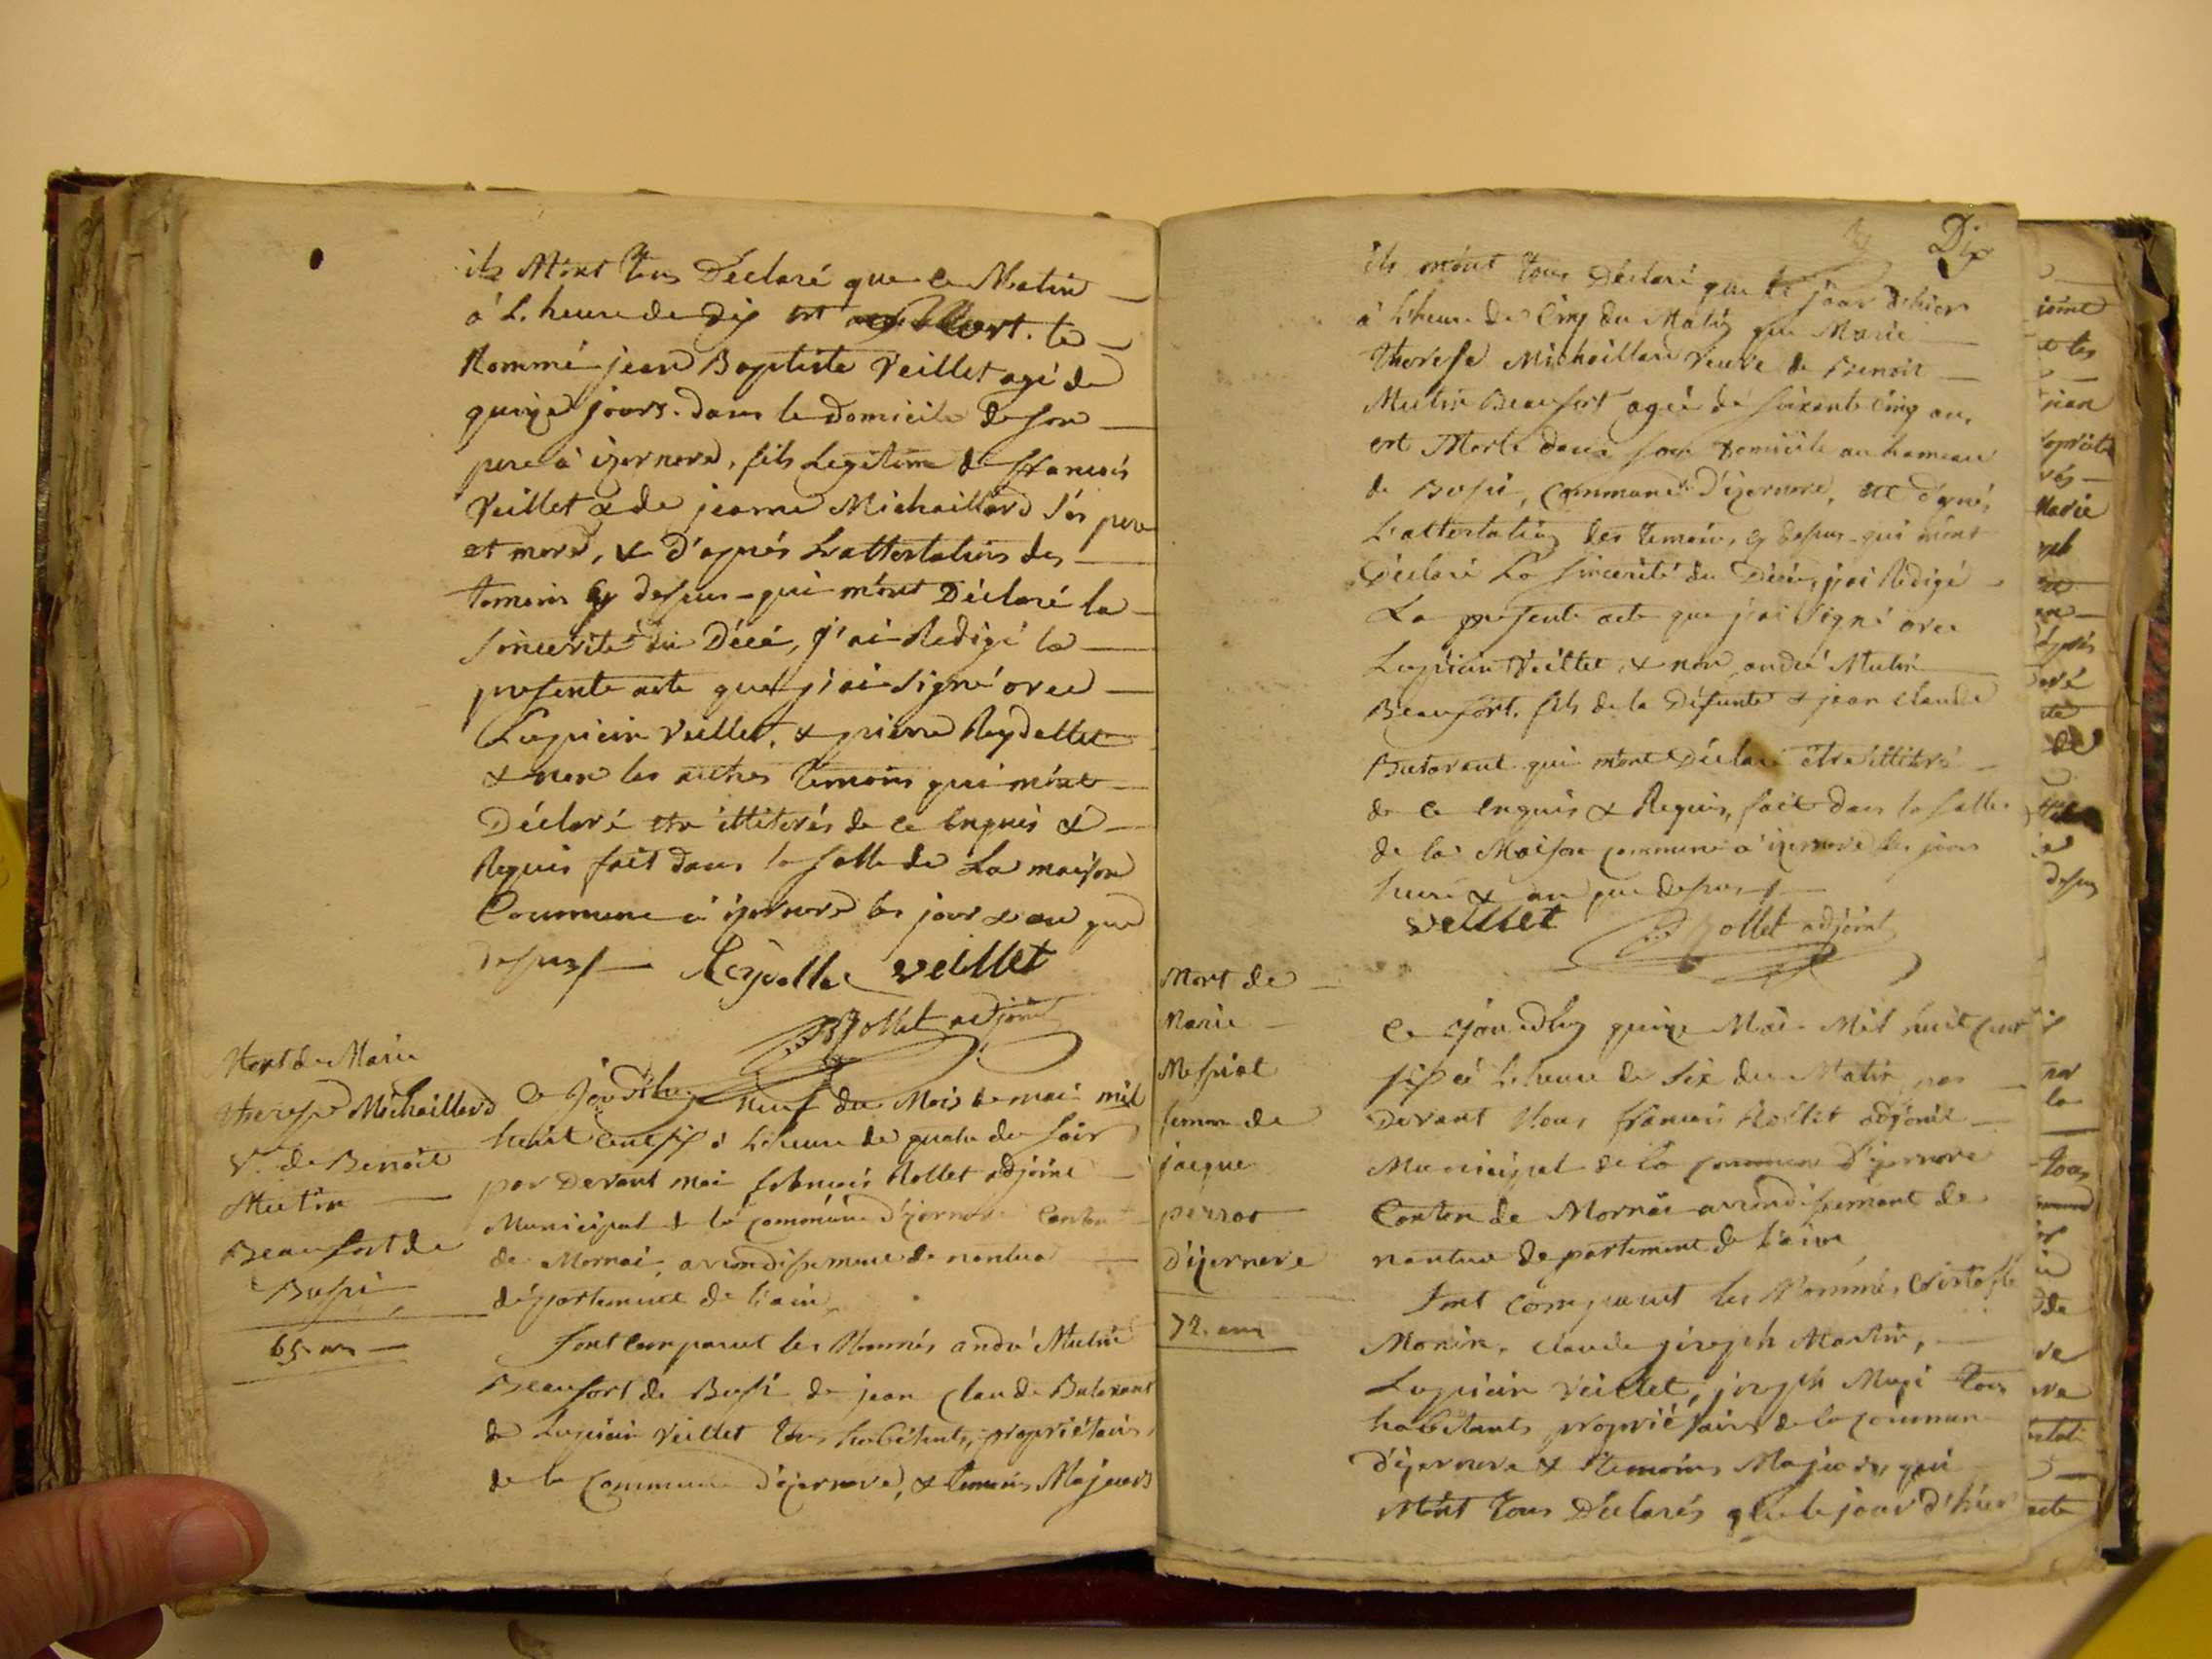 ils M'ont tous Déclaré que ce Matin
à L'heure de dix est mort. le
Nommé jean Baptiste Veillet agé de
quinze jours. dans le Domicile de son
pere à izernore, fils Legitime de francois
Veillet & de jeanne Michaillard Ses pere
et mere, & d'aprés L'attestations des
temoins cy dessus qui m'ont Déclaré la
sincerité du Décé, j'ai Redigé la
presente acte que j'ai signé avec
Lupicin Veillet, & pierre Reydellet
& non les autres temoins qui m'ont
Déclaré etre illiterés de ce enquis &
Requis fait dans la salle de La maison
Commune à izernore les jour & an que
dessus Reydellet veillet
Rollet adjoint
Mort de Marie
therese Michaillard
Ve. de Benoit
Mutin
Beaufort de
Bussi
65 ans
Ce jourd'huy neuf du Mois de mai mil
huit cent six à L'heure de quatre du soir
par Devant moi francois Rollet adjoint
Municipal de la commune d'izernore Canton
de Mornai, arrondissement de nantua
département de l'ain
sont comparut les Nommés andré Mutin
Beaufort de Bussi de jean Claude Butavant
de Lupicin Veillet tous habitants, propriétaires
de la Commune d'izernore, & temoins Majeurs
Dix
ils m'ont tous Déclaré que le jour d'hier
à L'heure de Cinq du Matin que Marie
therese Michaillard veuve de Benoit
Mutin Beaufort agée de soixante cinq ans
est Morte dans son domicile au hameau
de Bussi, commune d'izernore, et d'aprés
L'attestation des temoins cy dessus qui m'ont
Déclaré La sincerité du Décés, j'ai Redigé
La presente acte que j'ai signé avec
Lupicin Veillet, & non andré Mutin
Beaufort, fils de la Défunte & jean claude
Butavant qui m'ont Déclaré être illitéré
de ce enquis & Requis, fait dans la salle
de la Maison commune à izernore les jour
heure & an que dessus
veillet Rollet adjoint
Mort de
Marie
Messiat
femme de
jacque
perrot
d'izernore
72. ans
Ce jourd'huy quinze Mai Mil huit cent
six à L'heure de six du Matin par
Devant Nous francois Rollet adjoint
Municipal de la commune D'izernore
Canton de Mornai arrondissement de
nantua departement de l'ain
sont comparut les Nommés Cristofle
Monin, claude joseph Martin,
Lupicin Veillet, joseph Mugi tous
habitants propriétaires de la commune
d'izernore & temoins Majeurs, qui
M'ont tous Déclarés que le jour d'hier